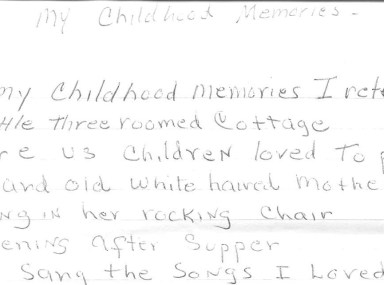 My Childhood Memories -
my Childhood memories I rete
ttle three roomed Cottage
re us Children loved to p
and old white haired Mothe
ng in her rocking Chair
ening after Supper
Sang the Songs I Loved